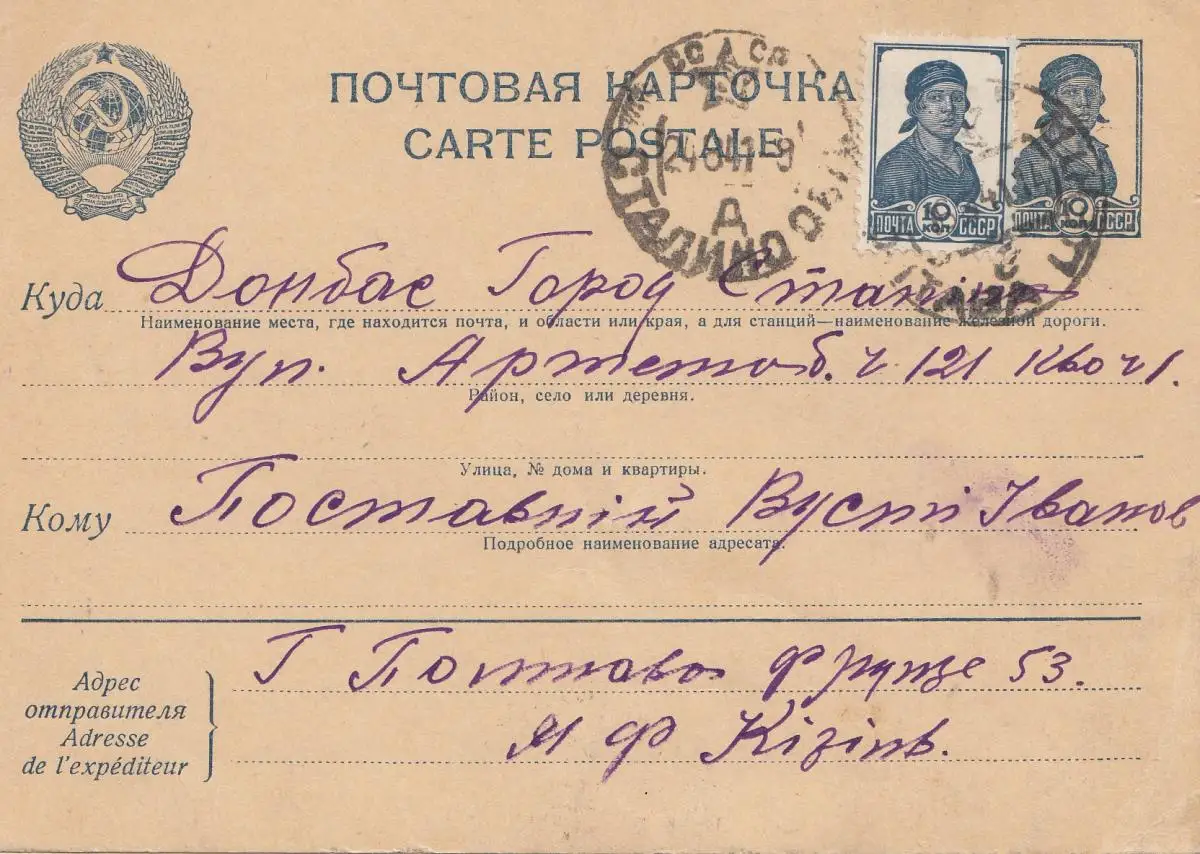 ПОЧТОВАЯ КАРТОЧКА
CARTE POSTALE
СТАЛИНО
24 04 41 9
Д
10
КОП
ПОЧТА СССР
10
ПОЧТА СССР
Куда Донбас Город Сталіно
Наименование места, где находится почта, и области или края, а для станций—наименование железной дороги.
Вул. Артема б. ч 121 кв
Район, село или деревня.
Улица, № дома и квартиры.
Кому Поставній Вусті Іванов
Подробное наименование адресата.
Г Полтава Фрунзе 53.
Адрес
отправителя
Adresse
de l'expéditeur
М Ф